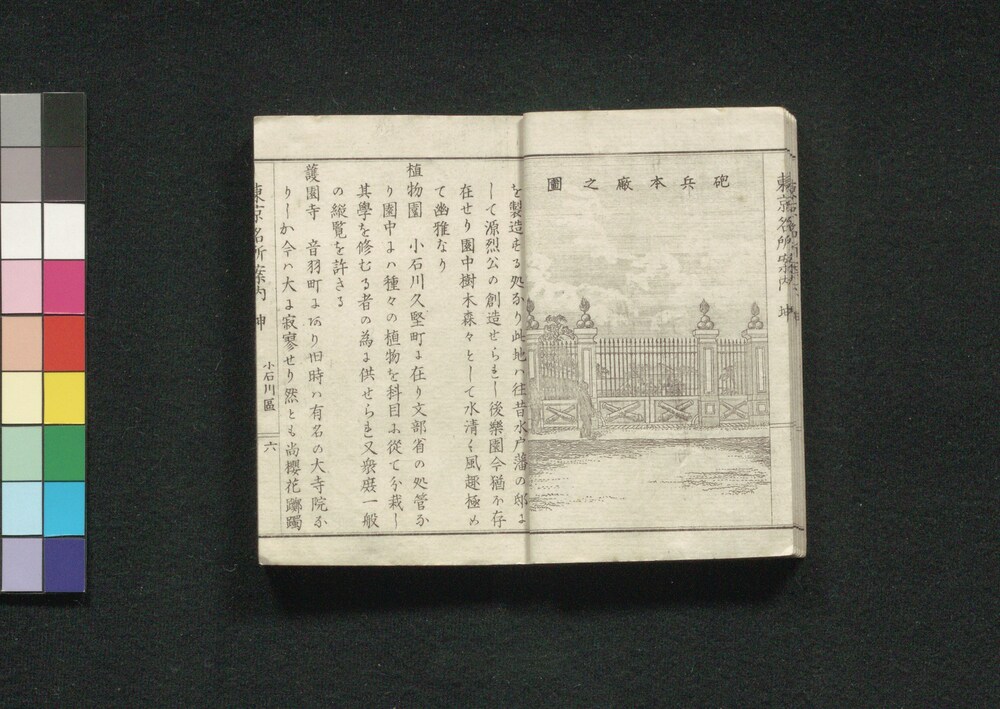 砲兵本廠之圖
を製造せる処なり此地ハ往昔水戸藩の邸に
して源烈公の創造せられし後樂園今猶ほ存
在せり園中樹木森々として水清く風趣極め
て幽雅なり
植物園 小石川久堅町に在り文部省の処管な
り園中にハ種々の植物を科目に從て分栽し
其學を修むる者の為に供せられ又衆庶一般
の縦覧を許さる
護國寺 音羽町にあり旧時ハ有名の大寺院な
りしか今ハ大に寂寥せり然とも尚櫻花躑躅
東京名所案内 坤
小石川區
六